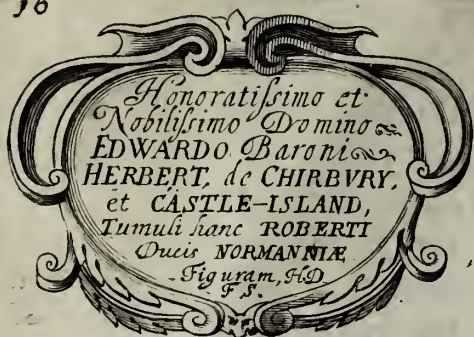 Honoratissimo et
Nobilissimo Domino
EDWARDO Baroni
HERBERT, de CHIRBVRY,
et CASTLE-ISLAND,
Tumuli hanc ROBERTI
Ducis NORMANNIÆ
Figuram, HD
F S.